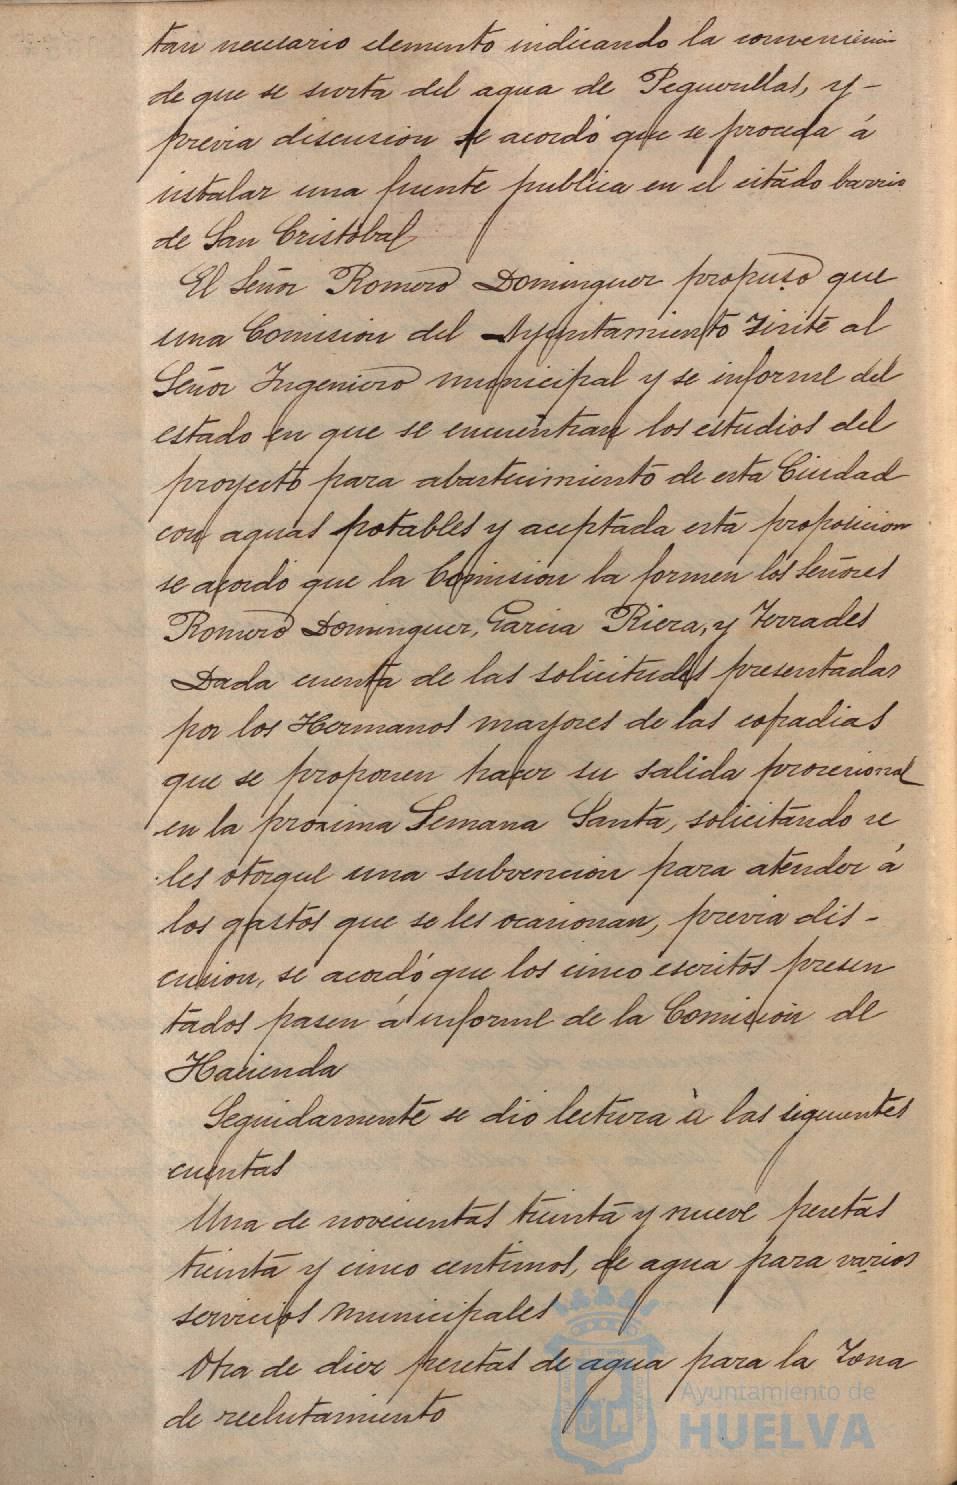 tan necesario elemento indicando la conveniencia
de que se surta del agua de Peguerillas, y -
previa discusion se acordó que se proceda á
instalar una fuente publica en el citado barrio
de San Cristóbal
El Señor Romero Dominguez propuso que
una Comision del Ayuntamiento visite al
Señor Ingeniero municipal y se informe del
estado en que se encuentran los estudios del
proyecto para abastecimiento de esta Ciudad
con aguas potables y aceptada esta proposicion
se acordó que la Comision la formen los Señores
Romero Dominguez, Garcia Riera, y Terrades
Dada cuenta de las solicitudes presentadas
por los Hermanos mayores de las cofradias
que se proponen hacer su salida procesional
en la proxima Semana Santa, solicitando se
les otorgue una subvencion para atender á
los gastos que se les ocasionan, previa dis-
cusion, se acordó que los cinco escritos presen
tados pasen á informe de la Comision de
Hacienda
Seguidamente se dio lectura à las siguientes
cuentas
Una de novecientas treinta y nueve pesetas
treinta y cinco centimos, de agua para varios
servicios municipales
Otra de diez pesetas de agua para la Zona
de reclutamiento
Ayuntamiento de
HUELVA